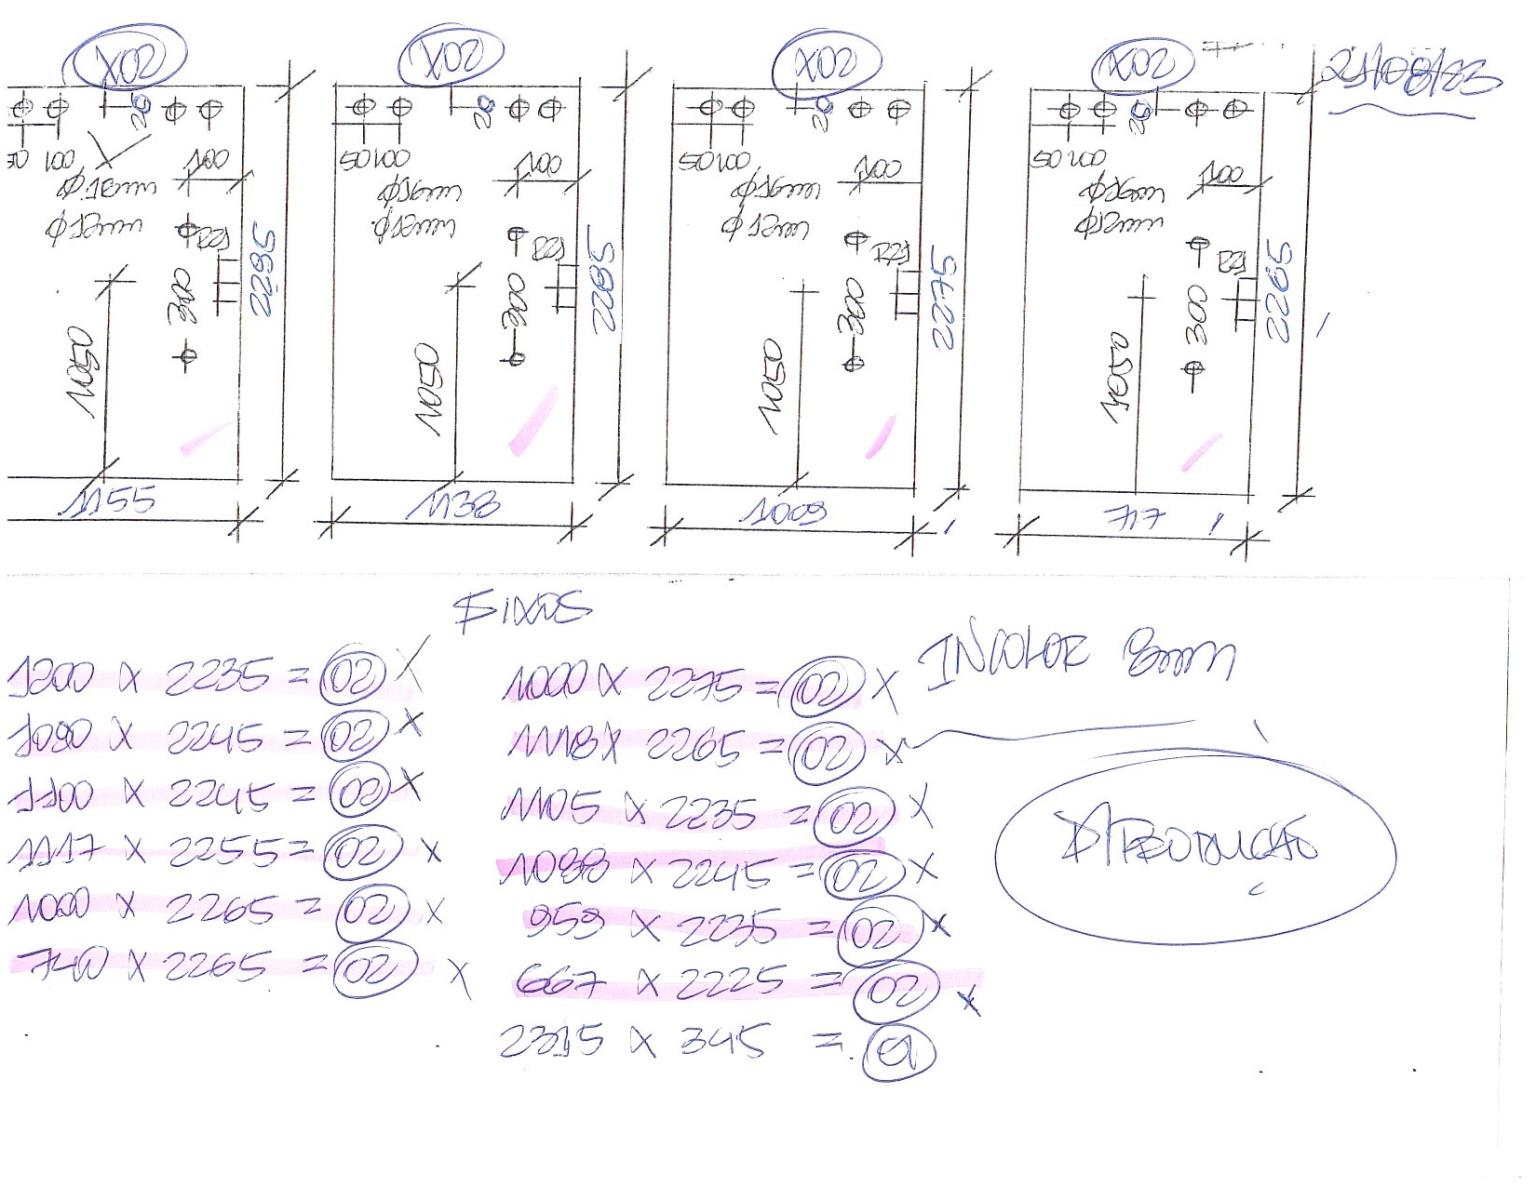 X02 X02 X02 X02 21/08/23
20 20 20 20
100 100 50 100 100 50 100 100 50 100 100
300 300 300 300
1050 1050 1050 1050
2285 2285 2275
1155 1138 1009 717
FIXOS
INCOLOR 8mm
1200 X 2235 = 02 X
1090 X 2245 = 02 X
1100 X 2245 = 02 X
1117 X 2255 = 02 X
1000 X 2265 = 02 X
740 X 2265 = 02 X
1000 X 2275 = 02 X
1118 X 2265 = 02 X
1105 X 2235 = 02 X
1088 X 2245 = 02 X
959 X 2235 = 02 X
667 X 2225 = 02 X
2315 X 345 = 01
P/PRODUÇÃO